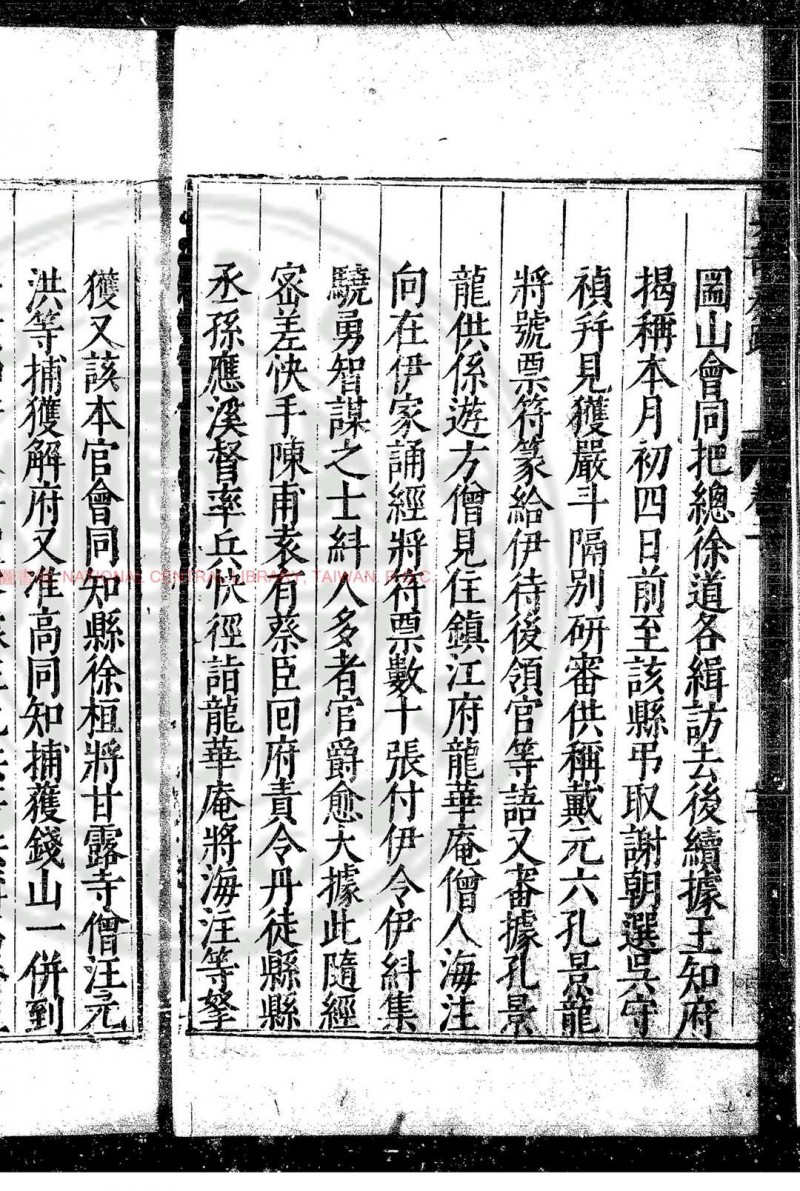 圌山會同把總徐道各緝訪去後續據王知府
揭稱本月初四日前至該縣弔取謝朝選吳守
禎幷見獲嚴斗隔別研審供稱戴元六孔景龍
將號票符篆給伊待後領官等語又審據孔景
龍供係遊方僧見住鎮江府龍華庵僧人海注
向在伊家誦經將符票數十張付伊令伊糾集
驍勇智謀之士糾人多者官爵愈大據此隨經
密差快手陳甫袁有蔡臣回府責令丹徒縣縣
丞孫應溪督率兵快徑詣龍華庵將海注等拏
獲又該本官會同知縣徐桓將甘露寺僧汪元
洪等捕獲解府又准高同知捕獲錢山一併到
NATIONAL CENTRAL LIBRARY, TAIWAN, R.O.C.